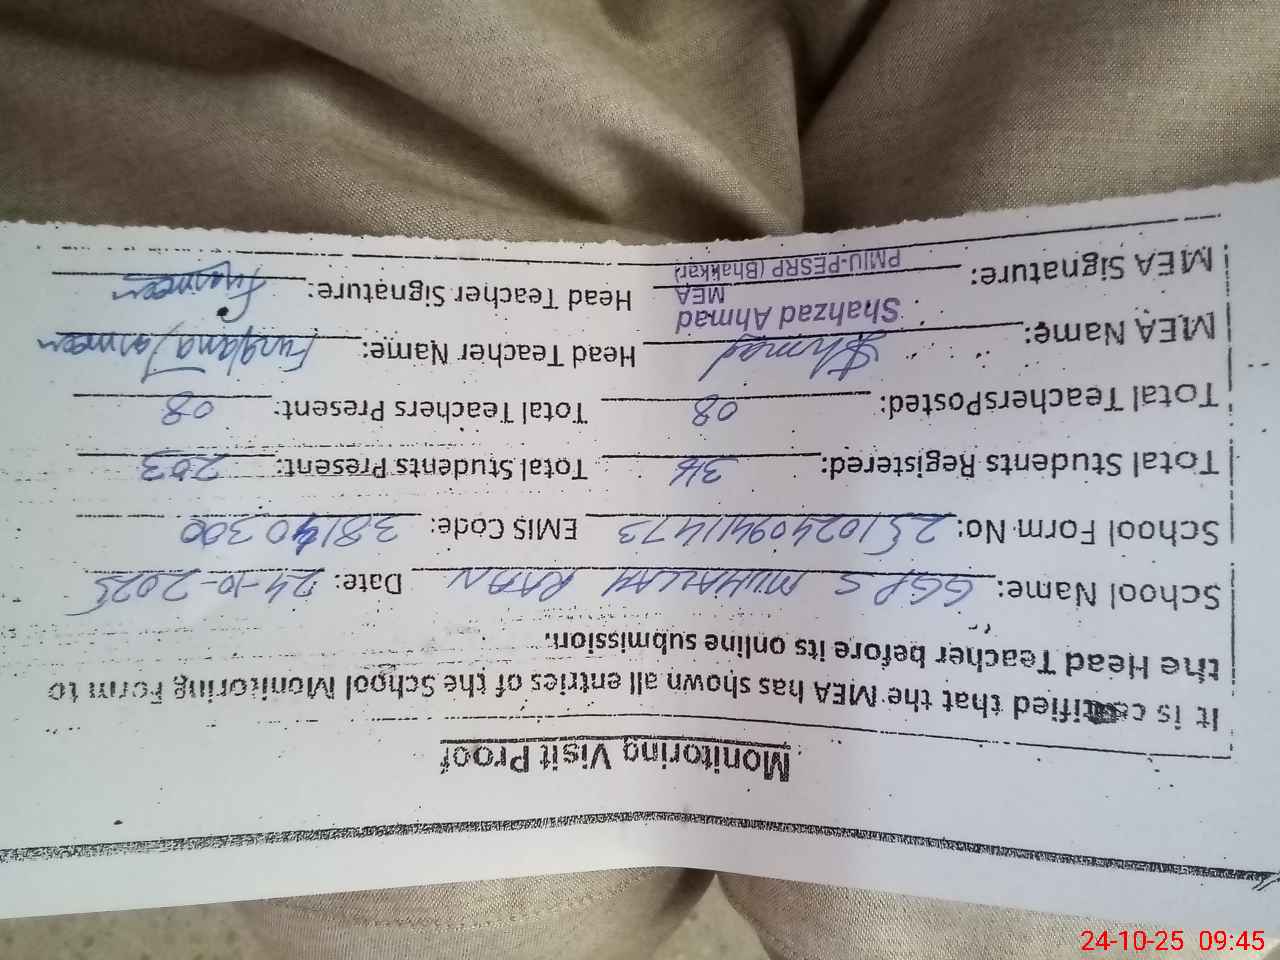 Monitoring Visit Proof
It is certified that the MEA has shown all entries of the School Monitoring Form to
the Head Teacher before its online submission.
School Name: GGPS MUHALLAH RAAN Date: 24-10-2025
School Form No: 25102409411473 EMIS Code: 38140300
Total Students Registered: 316 Total Students Present: 203
Total TeachersPosted: 08 Total Teachers Present: 08
MEA Name: Ahmad Head Teacher Name: Farzana
Shahzad Ahmad
MEA
MEA Signature: PMIU-PESRP (Bhakkar) Head Teacher Signature:
24-10-25 09:45